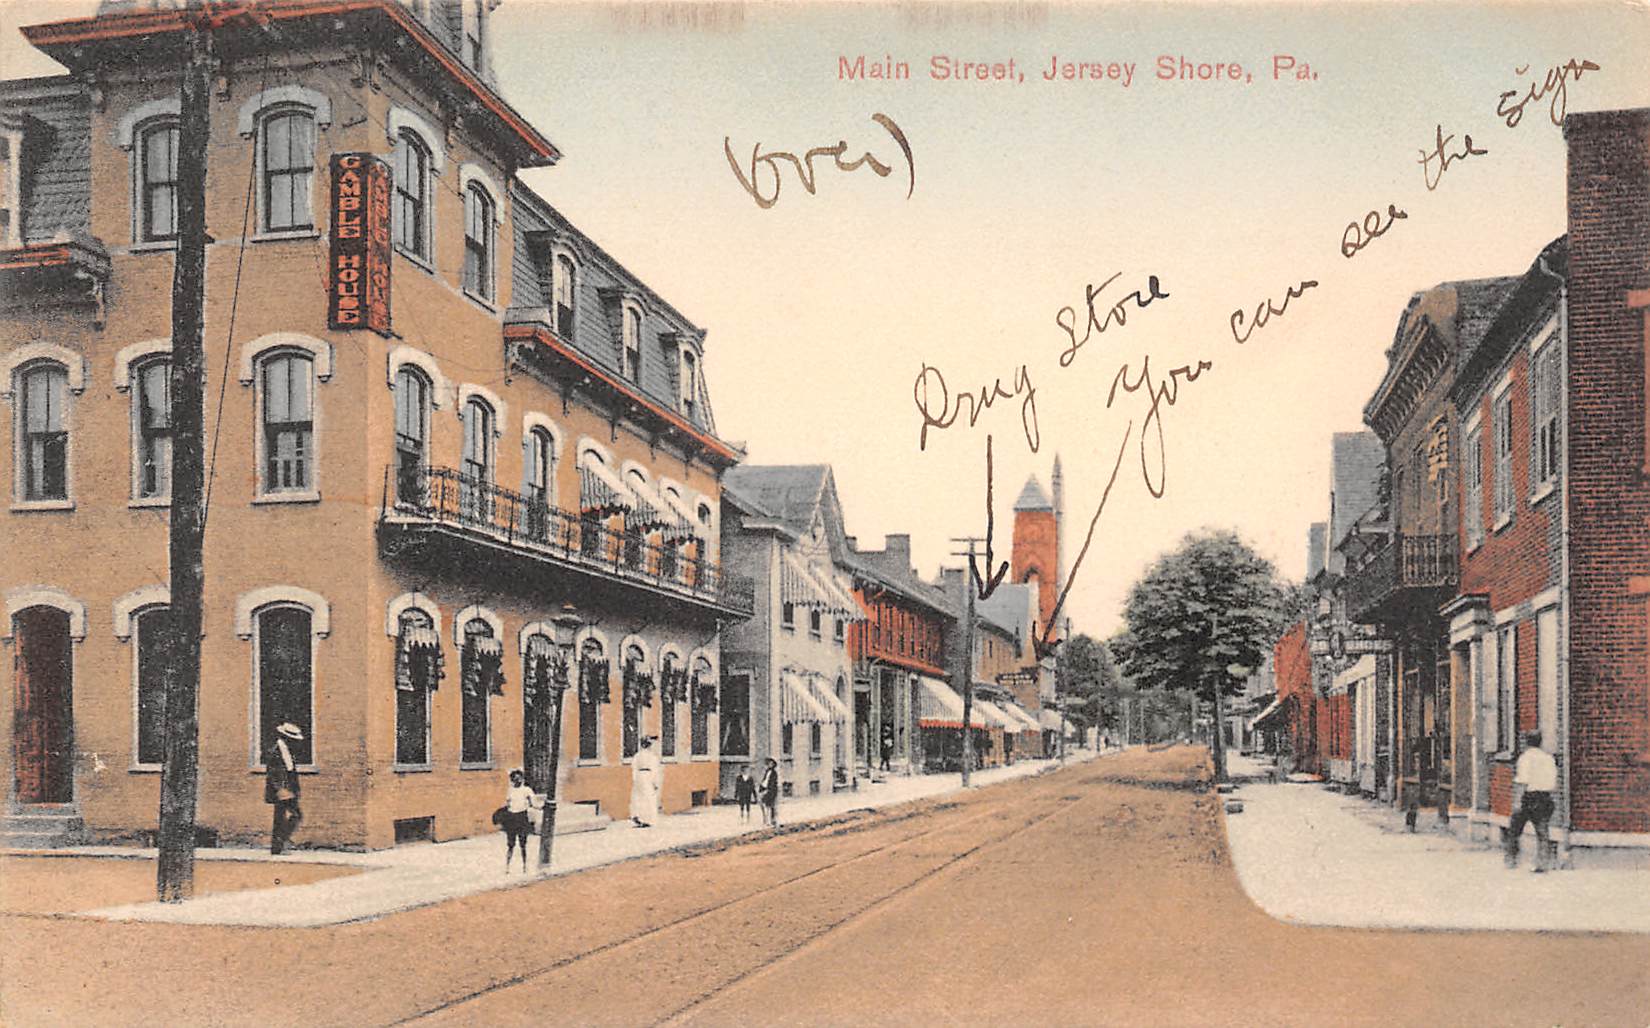 Main Street, Jersey Shore, Pa.
(over)
Drug Store
You can see the sign
GAMBLE HOUSE
GAMBLE HOUSE